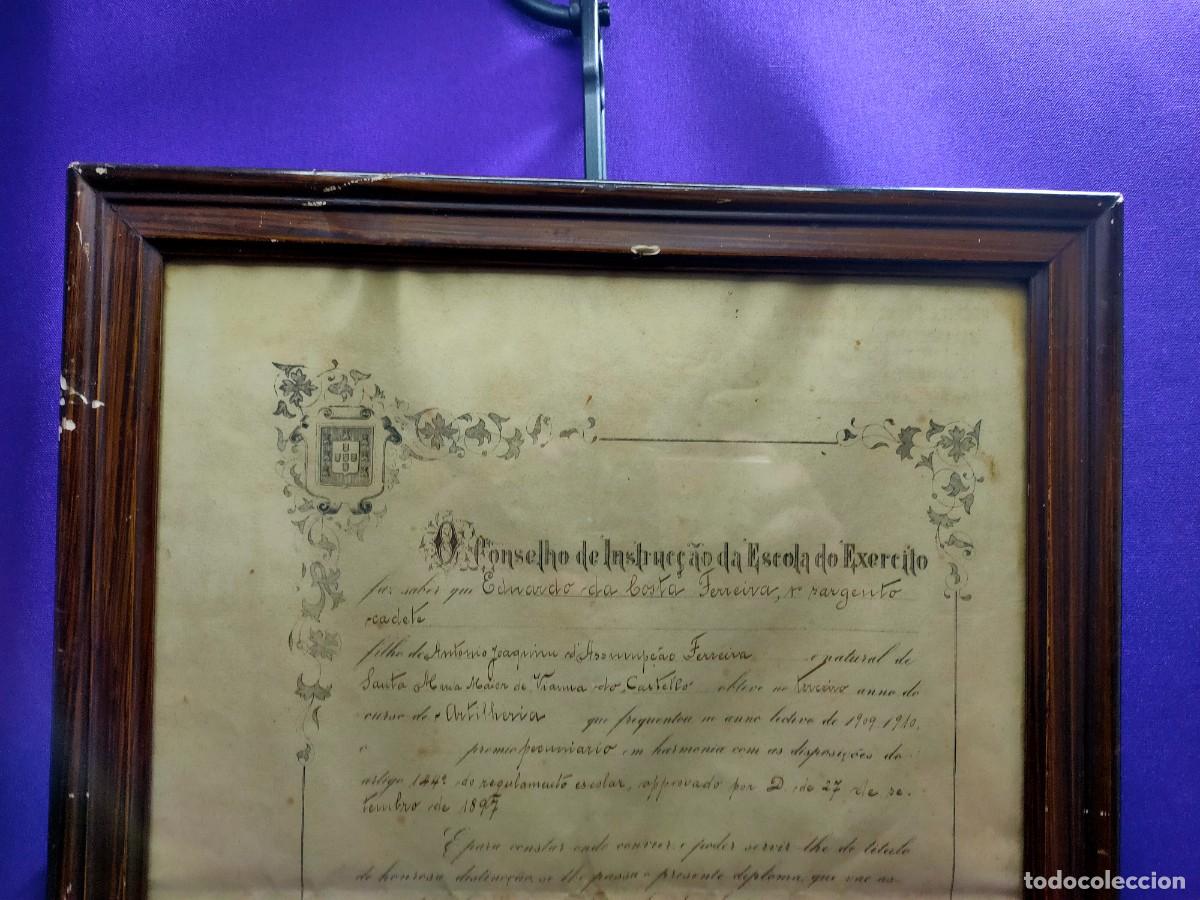 O Conselho de Instrucção da Escola do Exercito
faz saber que Eduardo da Costa Ferreira, 1º sargento
cadete
filho de Antonio Joaquim d'Assumpção Ferreira e natural de
Santa Maria Maior de Vianna do Castello obteve no terceiro anno do
curso de Artilheria que frequentou no anno lectivo de 1909-1910,
o premio pecuniario em harmonia com as disposições do
artigo 144º do regulamento escolar, approvado por D. de 27 de se-
tembro de 1897
E para constar onde convier e poder servir-lhe de titulo
de honrosa distincção, se lhe passa o presente diploma, que vae as-
todocoleccion